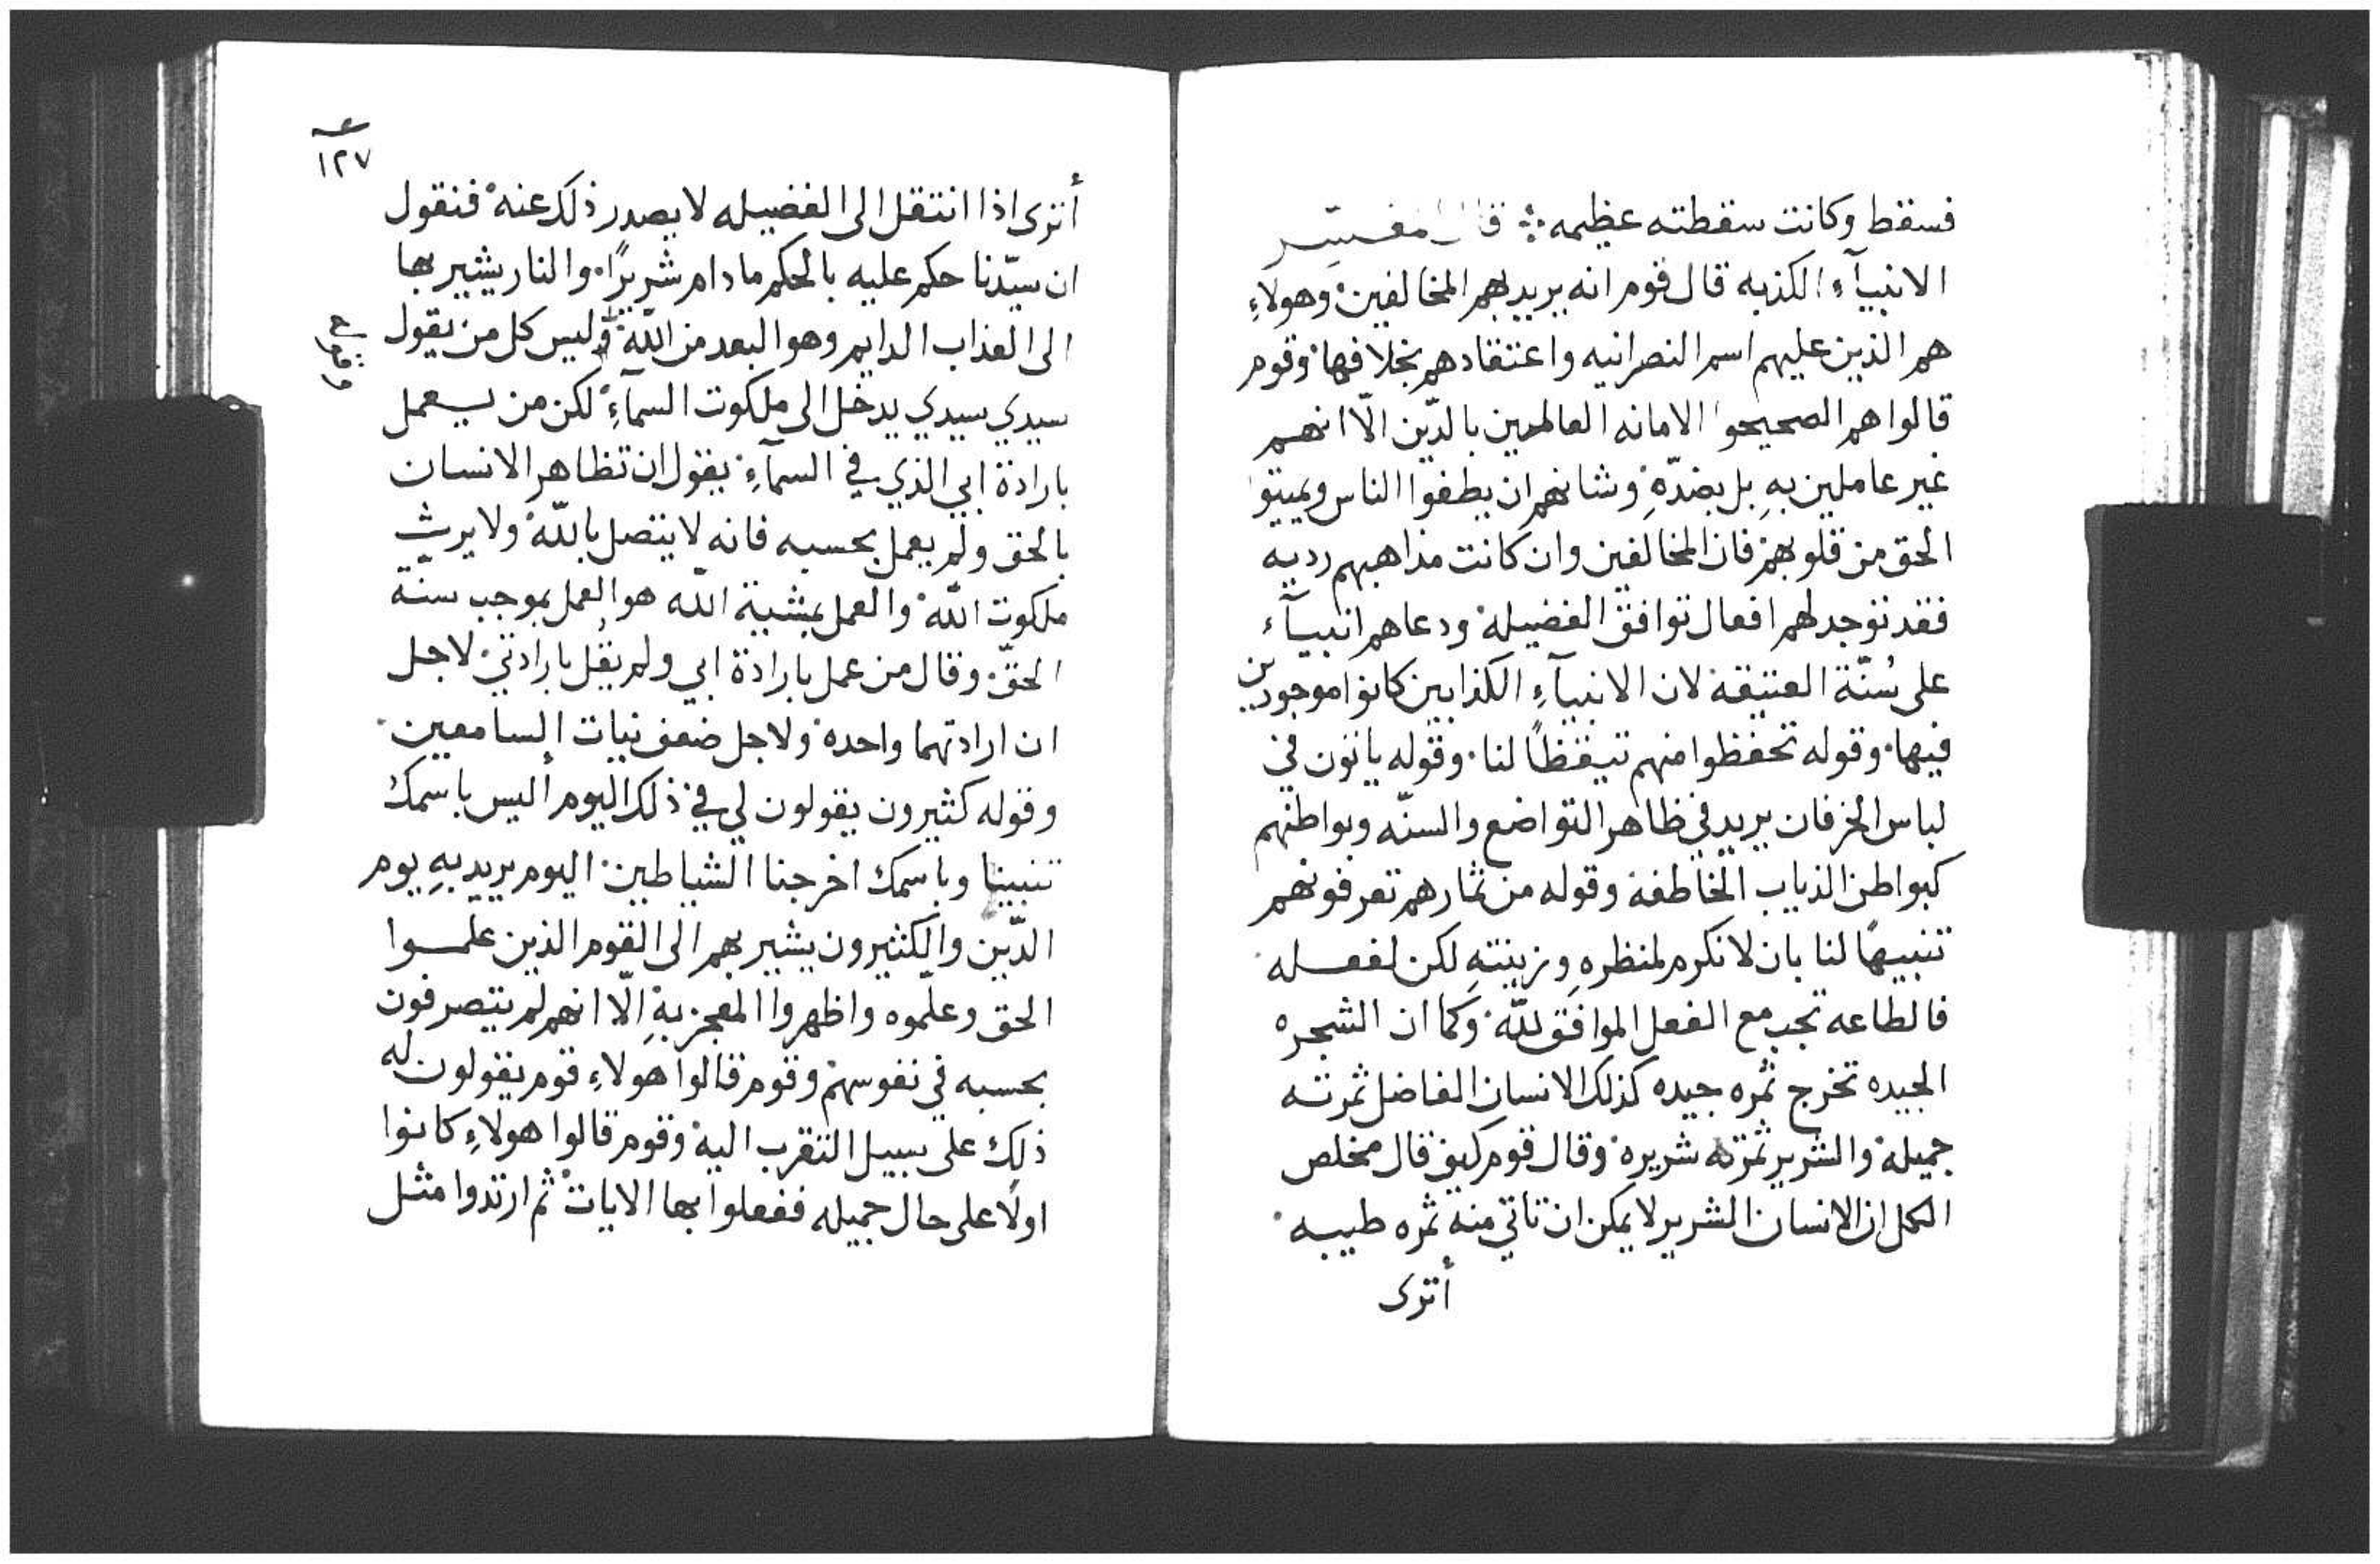 فسقط وكانت سقطته عظيمه ܀ قال المفسّر
الانبيآءِ الكذبه قال قوم انه يريد بهم المخالفين وهولاءِ
هم الذين عليهم اسم النصرانيه واعتقادهم بخلافها وقوم
قالوا هم الصحيحوا الامانه العالمين بالدّين الّا انهم
غير عاملين بهِ بل بضدّهِ وشانهم ان يطغوا الناس ويميتوا
الحق من قلوبهم فان المخالفين وان كانت مذاهبهم رديه
فقد توجد لهم افعال توافق الفضيله ودعاهم انبيآء
على سُنّة العتيقة لان الانبيآءِ الكذابين كانوا موجودين
فيها وقوله تحفظوا منهم تيقظًا لنا وقوله ياتون في
لباس الخرفان يريد في ظاهر التواضع والسنّه وبواطنهم
كبواطن الذياب الخاطفة وقوله من ثمارهم تعرفونهم
تنبيهًا لنا بان لا نكرم لمنظرهِ وزينتهِ لكن لفعله
فالطاعه تجب مع الفعل الموافق للّه وكما ان الشجره
الجيده تخرج ثمره جيده كذلك الانسان الفاضل ثمرته
جميلة والشرير ثمرته شريره وقال قوم كيف قال مخلص
الكل ان الانسان الشرير لا يمكن ان تاتي منه ثمره طيبه
أترى
١٢٧
أترى اذا انتقل الى الفضيله لا يصدر ذلك عنه فنقول
ان سيّدنا حكم عليه بالحكم ما دام شريرًا والنار يشير بها
الى العذاب الدايم وهو البعد من اللّه وليس كل من يقول
سيدي سيدي يدخل الى ملكوت السمآءِ لكن من يعمل
بارادة ابي الذي في السمآءِ يقول ان تظاهر الانسان
بالحق ولم يعمل بحسبه فانه لا يتصل باللّه ولا يرث
ملكوت اللّه والعمل بمشية اللّه هو العمل بموجب سنة
الحقّ وقال من عمل بارادة ابي ولم يقُل بارادتي لاجل
ان ارادتهما واحده ولاجل ضعف نيات السامعين
وقوله كثيرون يقولون لي في ذلك اليوم أليس باسمك
تنبينا وباسمك اخرجنا الشياطين اليوم يريد بهِ يوم
الدّين والكثيرون يشير بهم الى القوم الذين علموا
الحق وعلّموه واظهروا المعجز بهِ الّا انهم لم يتصرفون
بحسبه في نفوسهم وقوم قالوا هولاءِ قوم يقولون له
ذلك على سبيل التقرب اليه وقوم قالوا هولاءِ كانوا
اولًا على حال جميله ففعلوا بها الايات ثم ارتدوا مثل